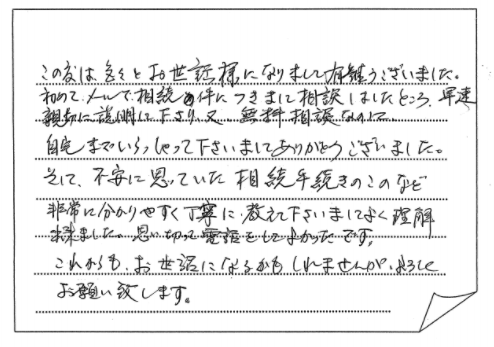 この度は色々とお世話様になりまして有難うございました。
初めてメールで相続の件につきまして相談しましたところ、早速
親切に説明して下さり、又、無料相談なのに、
自宅までいらっしゃって下さいましてありがとうございました。
そして、不安に思っていた相続手続きのことなど
非常に分かりやすく丁寧に教えて下さいましてよく理解
出来ました。思い切って電話をしてよかったです。
これからも、お世話になるかもしれませんが、よろしく
お願い致します。